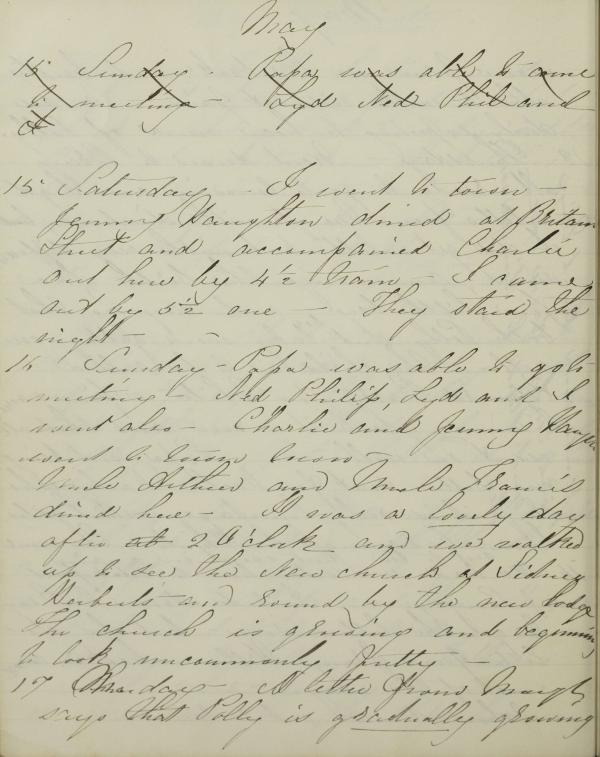 May
15 Sunday - Papa was able to come
to meeting - Lyd Ned Phil and
I
15 Saturday - I went to town -
Jenny Haughton dined at Britain
Street and accompanied Charlie
out here by 4½ train - I came
out by 5½ one - They staid the
night -
16 Sunday - Papa was able to go to
meeting - Ned Philip, Lyd and I
went also - Charlie and Jenny Haugh
went to town
Uncle Arthur and Uncle Francis
dined here - It was a lovely day
after at 2 O'clock and we walked
up to see the New church at Sidney
Herberts and round by the new lodge
The church is growing and beginning
to look uncommonly pretty -
17 Monday - A letter from Margt
says that Polly is gradually growing